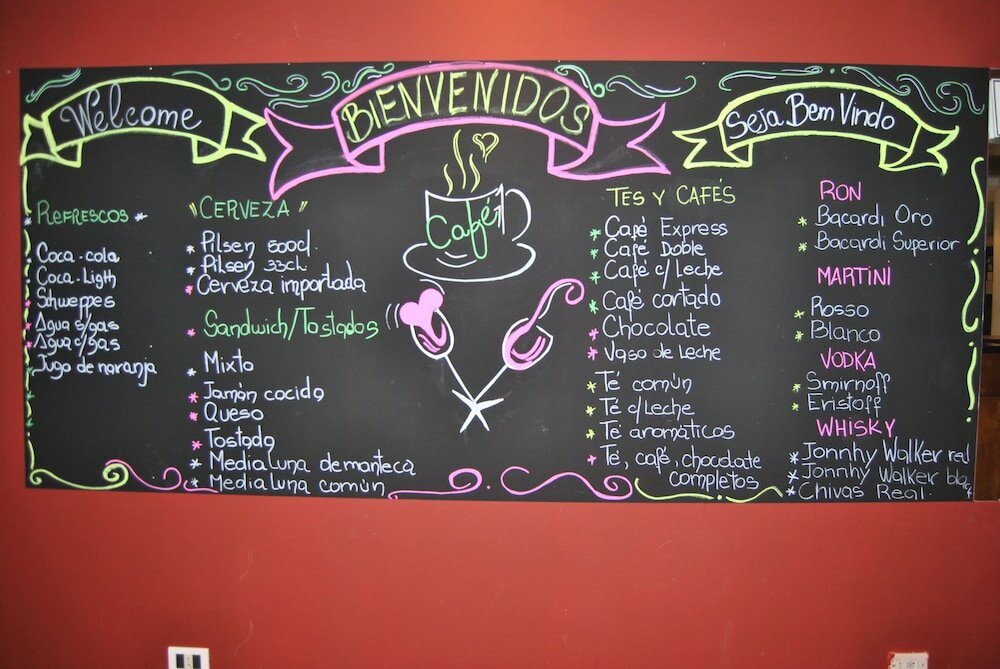 Welcome
BIENVENIDOS
Seja Bem Vindo
Refrescos
Coca-cola
Coca-Ligth
Schweppes
Agua s/gas
Agua c/gas
Jugo de naranja
"CERVEZA"
Pilsen 500cl.
Pilsen 33cl.
Cerveza importada
Sandwich/Tostados
Mixto
Jamón cocido
Queso
Tostado
Medialuna de manteca
Medialuna común
Café
TES Y CAFÉS
Café Express
Café Doble
Café c/Leche
Café cortado
Chocolate
Vaso de Leche
Té común
Té c/Leche
Té aromáticos
Té, café, chocolate
completos
RON
Bacardi Oro
Bacardi Superior
MARTINI
Rosso
Blanco
VODKA
Smirnoff
Eristoff
WHISKY
Jonnhy Walker red
Jonnhy Walker black
Chivas Real.